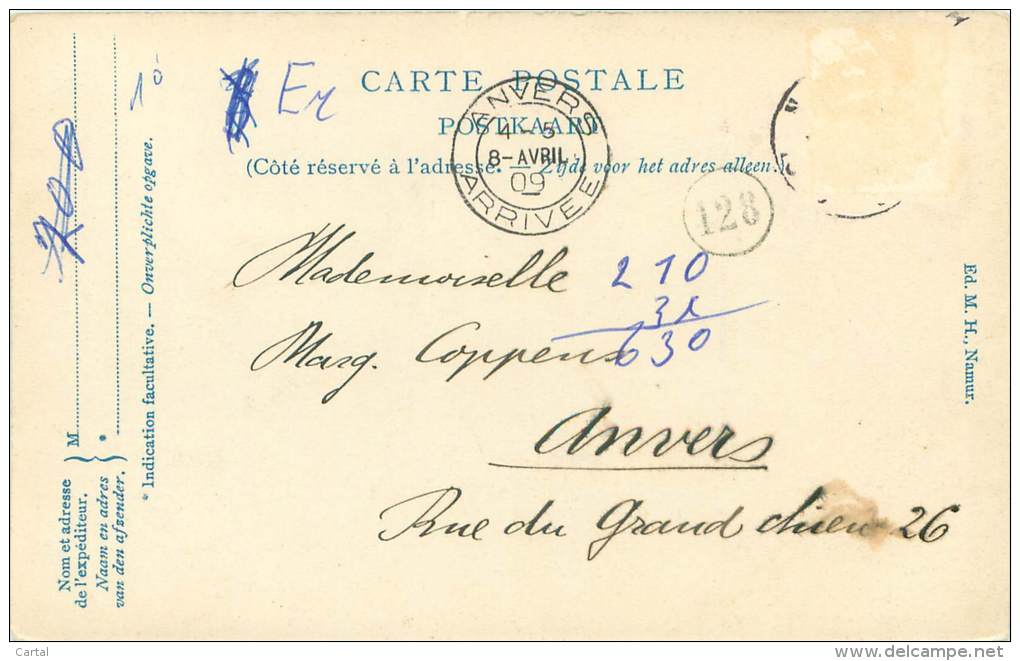 CARTE POSTALE
POSTKAART
(Côté réservé à l'adresse. — Zijde voor het adres alleen.)
ANVERS
4 - 5
8-AVRIL
09
ARRIVEE
128
Er
10
700
Mademoiselle
Marg. Coppens
Anvers
Rue du Grand chien 26
210
31
630
Nom et adresse
de l'expéditeur.
Naam en adres
van den afzender.
M
*
* Indication facultative. — Onverplichte opgave.
Ed. M. H., Namur.
Cartal
delcampe.net